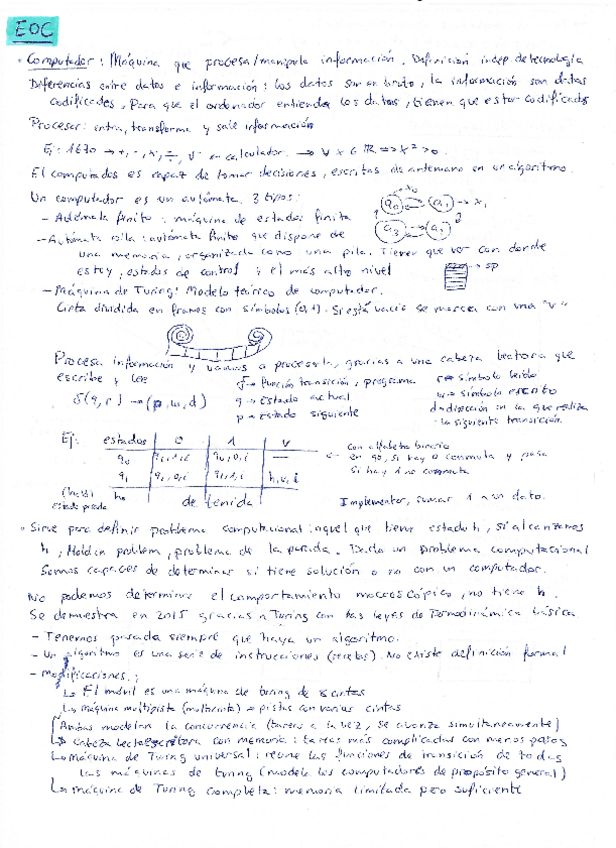 EOC
• Computador: Máquina que procesa/manipula información. Definición indep de tecnología
Diferencias entre datos e información: los datos son en bruto, la información son datos
codificados, Para que el ordenador entienda los datos, tienen que estar codificados
Procesar: entra, transforma y sale información
Ej: 1670 → +, -, x, ÷, √ en calculador. → ∀ x ∈ ℝ => x² > 0.
El computador es capaz de tomar decisiones, escritas de antemano en un algoritmo.
Un computador es un autómata. 3 tipos:
- Autómata finito: máquina de estados finita
- Autómata pila: autómata finito que dispone de
una memoria, organizada como una pila. Tienen que ver con donde
estoy, estados de control y el más alto nivel
→ sp
- Máquina de Turing: Modelo teórico de computador.
Cinta dividida en frames con símbolos (0,1). Si está vacío se marca con una "v"
Procesa información y vamos a procesarla, gracias a una cabeza lectora que
escribe y lee
δ(q,r) → (p,w,d)
δ → función transición, programa
q → Estado actual
p → estado siguiente
r → símbolo leído
w → símbolo escrito
d → dirección en la que realiza
la siguiente transición.
Ej: estados 0 1 v
q0 q1,1,i q0,0,i —
q1 q1,0,i q1,1,i h,v,i
(halt) h0 detenida
estado parada
con alfabeto binario
en q0, si hay 0 conmuta y pasa
si hay 1 no conmuta
Implementar, sumar 1 a un dato.
• Sirve para definir problema computacional: aquel que tiene estado h, si alcanzamos
h, Holdin problem, problema de la parada. Dado un problema computacional
somos capaces de determinar si tiene solución o no con un computador.
No podemos determinar el comportamiento macroscópico, no tiene h.
Se demuestra en 2015 gracias a Turing con las leyes de Termodinámica básica
- Tenemos parada siempre que haya un algoritmo.
- Un algoritmo es una serie de instrucciones (recetas). No existe definición formal
- Modificaciones:
↳ El móvil es una máquina de turing de 8 cintas
↳ Máquina multipista (multicinta) → pistas con varias cintas
[Ambas modelan la concurrencia (tareas a la vez, se avanza simultaneamente)
↳ Cabeza lectoescritora con memoria: tareas más complicadas con menos pasos
↳ Máquina de Turing universal: reúne las funciones de transición de todas
las máquinas de turing (modela los computadores de propósito general)
↳ Máquina de Turing completa: memoria limitada pero suficiente